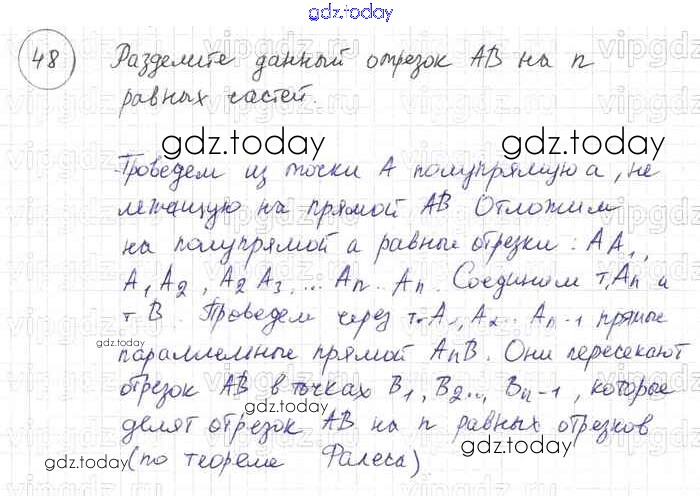 gdz.today
48 Разделите данный отрезок AB на n
равных частей.
gdz.today
Проведем из точки A полупрямую a, не
лежащую на прямой AB Отложим
на полупрямой a равные отрезки: AA₁,
A₁A₂, A₂A₃, ... Aₙ.. Aₙ. Соедином т. Aₙ и
т. B. Проведем через т. A₁, A₂... Aₙ₋₁ прямые
параллельные прямой AₙB. Они пересекают
отрезок AB в точках B₁, B₂.., Bₙ₋₁, которые
делят отрезок AB на n равных отрезков
(по теореме Фалеса)
gdz.today
gdz.today
gdz.today
gdz.today
gdz.today